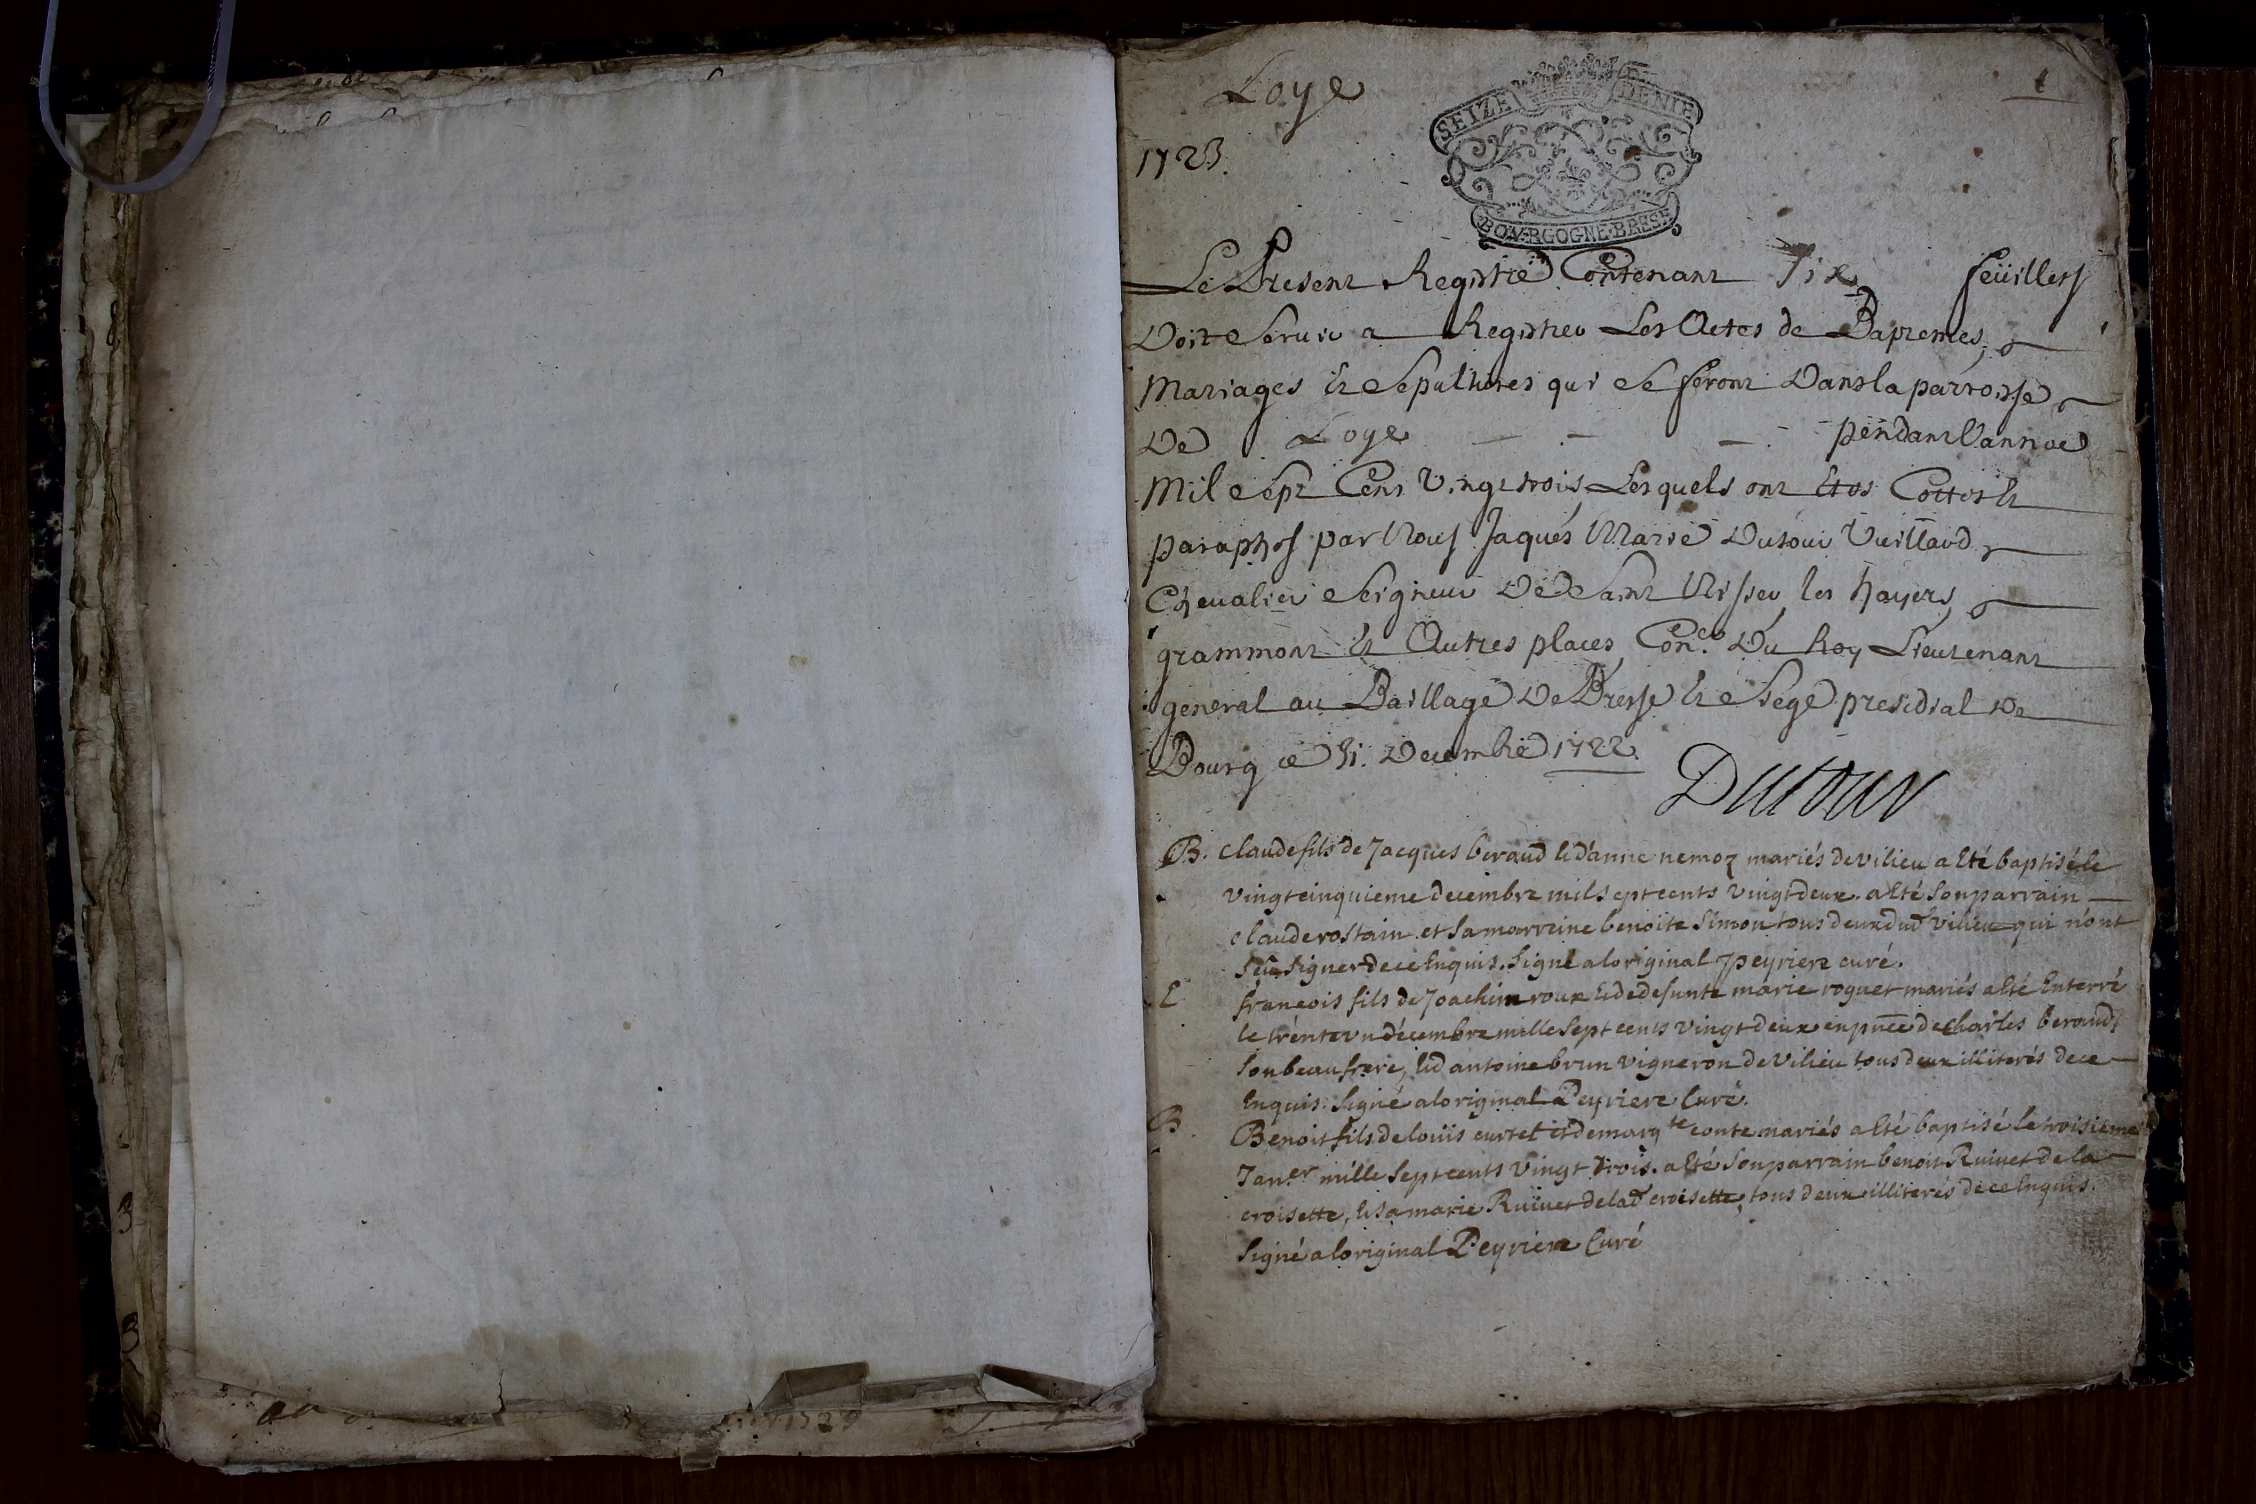 Loye
1
SEIZE DENIE
1723.
BOVRGOGNE BRESSE
Le Present Registre Contenant Six feüillets
Doit Servir a Registrer Les Actes de Baptemes,
Mariages et Sepultures qui Se feront Dans la parroisse
De Loye pendant L'année
Mil Sept Cent Vingt trois Lesquels ont Etes Cottes et
paraphes par Nous Jaques Marie Dutour Vuillard
Chevalier Seigneur De Saint Nisier les hayers,
grammont et Autres places, Con.er Du Roy Lieutenant
general au Baillage De Bresse et Siege presidial De
Bourg ce 31. Decembre 1722.
Dutour
B. claude fils de Jacques beraud et d'anne nemoz mariés de vilieu a Eté baptisé le
vingt cinquieme decembre mil sept cents vingt deux. a Eté son parrain
claude rostain et sa marreine benoite Simon tous deux dud vilieu qui n'ont
sçu signer de ce Enquis. signé a loriginal peyriere curé.
E françois fils de Joachim roux et de defunte marie roguet mariés a Eté Enterré
le trente un décembre mille sept cents vingt deux en pñce de charles beraud
son beau frere, et d antoine brun vigneron de vilieu tous deux illiterés de ce
Enquis. signé a loriginal Peyriere Curé.
B. Benoit fils de loüis curtet et de marg.te conte mariés a Eté baptisé le troisieme
Jan.er mille sept cents vingt trois. a Eté son parrain benoit Ruivet de la
croisette, et sa marie Ruivet de lad croisette, tous deux illiterés de ce Enquis.
signé a loriginal Peyriere Curé